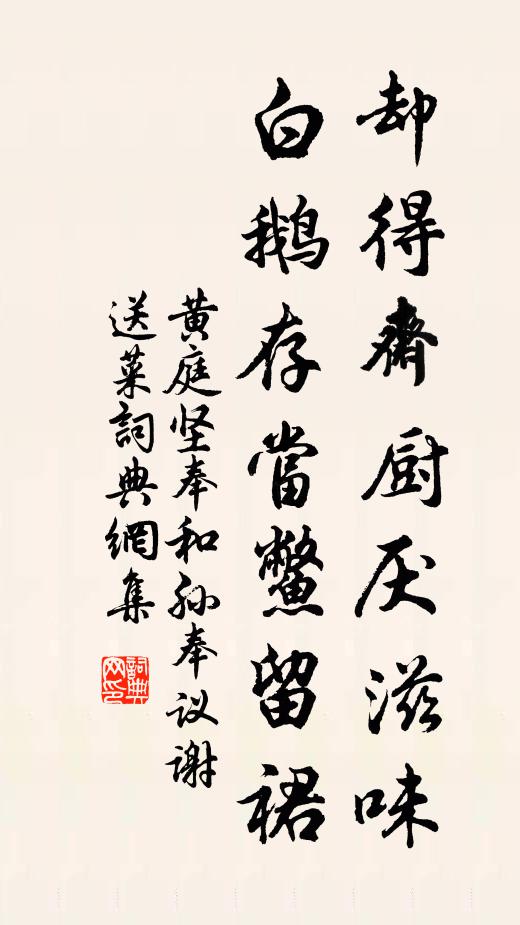 却得齋厨厌滋味
白鹅存掌鳖留裙
黄庭坚奉和孙奉议谢
送菜詞典網集
詞典网印